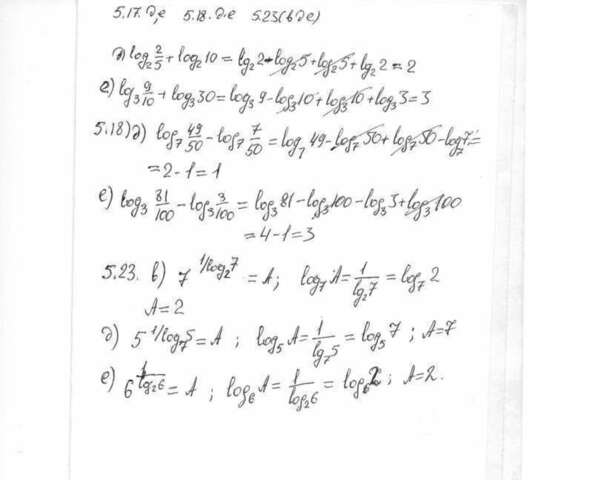 5.17. д,е 5.18. д.е 5.23(в д е)
д) log₂ 2/5 + log₂ 10 = lg₂ 2 - log₂ 5 + log₂ 5 + lg₂ 2 = 2
е) lg₃ 9/10 + log₃ 30 = log₃ 9 - log₃ 10 + log₃ 10 + log₃ 3 = 3
5.18) д) log₇ 49/50 - log₇ 7/50 = log₇ 49 - log₇ 50 + log₇ 50 - log₇ 7 =
= 2 - 1 = 1
е) log₃ 81/100 - log₃ 3/100 = log₃ 81 - log₃ 100 - log₃ 3 + log₃ 100
= 4 - 1 = 3
5.23. в) 7^(1/log₂ 7) = A; log₇ A = 1/lg₂ 7 = log₇ 2
A = 2
д) 5^(1/log₇ 5) = A; log₅ A = 1/lg₇ 5 = log₅ 7; A = 7
е) 6^(1/log₂ 6) = A; log₆ A = 1/log₂ 6 = log₆ 2; A = 2.